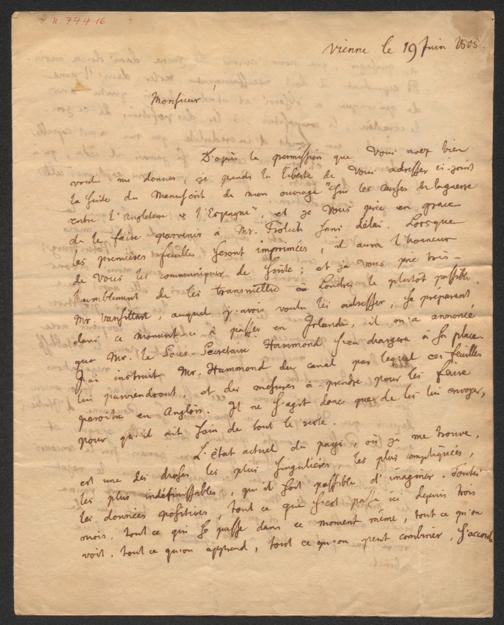 Vienne le 19 Juin 1805.
Monsieur!
D'après la permission que Vous avez bien
voulu me donner, je prends la liberté de Vous adresser ci-joint
la suite du Manuscrit de mon ouvrage "Sur les causes de la guerre
entre l'Angleterre & l'Espagne", et je Vous prie en grace
de le faire parvenir à Mr. Frölich sans délai. Lorsque
les premières feuilles seront imprimées il aura l'honneur
de Vous les communiquer de suite; et je Vous prie très-
humblement de les transmettre à Londres le plutôt possible.
Mr. Vansittart, auquel j'avois voulu les adresser, se preparant
dans ce moment-ci à passer en Irlande, il m'a annoncé
que Mr. le Sous-Secretaire Hammond s'en chargera à Sa place.
J'ai instruit Mr. Hammond du canal par lequel ces feuilles
lui parviendront, et des mesures à prendre pour les faire
paroitre en Anglois. Il ne s'agit donc que de les lui envoyer,
pour qu'il ait soin de tout le reste.
L'état actuel du pays, où je me trouve,
est une des choses les plus singulières, les plus compliquées,
les plus indéfinissables, qu'il soit possible d'imaginer. Toutes
les données positives, tout ce que s'est passé ici depuis trois
mois, tout ce qui se passe dans ce moment même, tout ce qu'on
voit, tout ce qu'on apprend, tout ce qu'on peut combiner, s'accorde